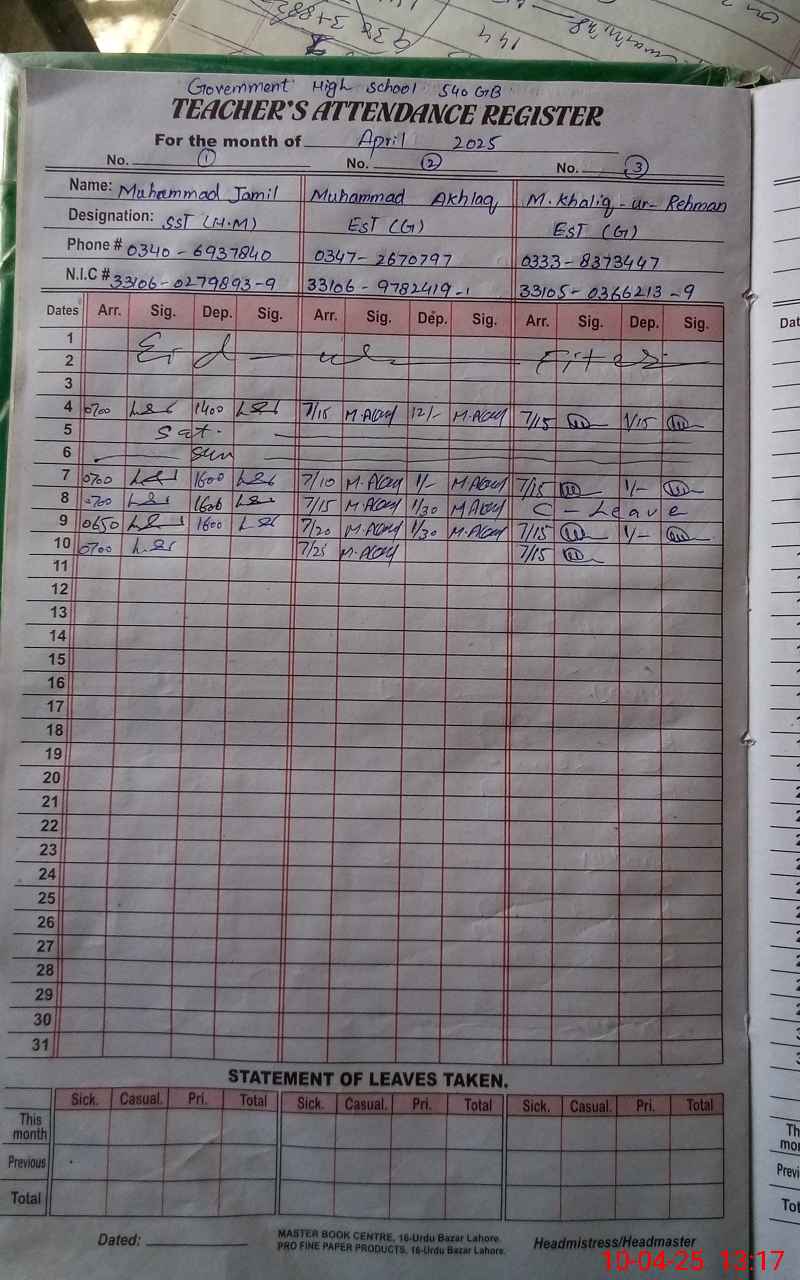 Government High School 540 GB
TEACHER'S ATTENDANCE REGISTER
For the month of April 2025
No. 1 No. 2 No. 3
Name: Muhammad Jamil Muhammad Akhlaq M. Khaliq-ur-Rehman
Designation: SST (H.M) EST (G) EST (G)
Phone # 0340-6937840 0347-2670797 0333-8373447
N.I.C # 33106-0279893-9 33106-9782419-1 33105-0366213-9
Dates Arr. Sig. Dep. Sig. Arr. Sig. Dep. Sig. Arr. Sig. Dep. Sig.
1
2 Eid-ul-Fiter
3
4 0700 1400 7/15 12/- 7/15 1/15
5 Sat.
6 Sun
7 0700 1600 7/10 1/- 7/15 1/-
8 0700 1600 7/15 1/30 C-Leave
9 0650 1600 7/20 1/30 7/15 1/-
10 0700 7/25 7/15
11
12
13
14
15
16
17
18
19
20
21
22
23
24
25
26
27
28
29
30
31
STATEMENT OF LEAVES TAKEN.
Sick. Casual. Pri. Total Sick. Casual. Pri. Total Sick. Casual. Pri. Total
This month
Previous
Total
Dated: MASTER BOOK CENTRE, 16-Urdu Bazar Lahore. Headmistress/Headmaster
PRO FINE PAPER PRODUCTS, 16-Urdu Bazar Lahore.
10-04-25 13:17